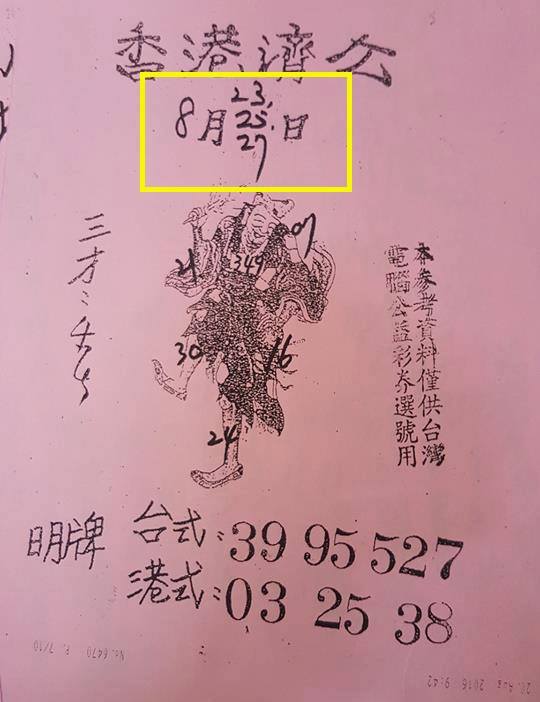 香港濟公
8月23.25.27日
三才:
07
349
30
16
24
本參考資料僅供台灣
電腦公益彩券選號用
明牌
台式:39 95 527
港式:03 25 38
No. 6470 P. 7/10
Aug 2016 9:42